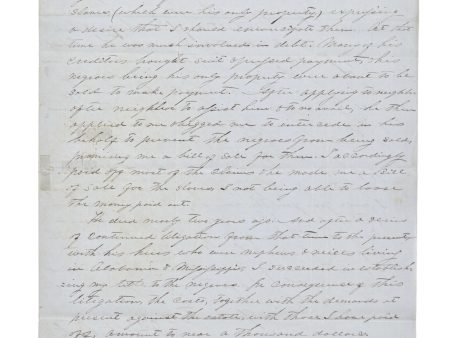 slaves (which were his only property) expressing
a desire that I should emancipate them. At that
time he was much involved in debt. Many of his
creditors bought suit & prefered payment, & his
negroes being his only property were about to be
sold to make payment. After applying to neighbor
after neighbor to assist him & to no avail, he then
applied to me & begged me to intercede in his
behalf to prevent the negroes from being sold,
promising me a bill of sale for them. I accordingly
paid off most of the claims & he made me a Bill
of Sale for the slaves, I not being able to loose
the money paid out.
He died nearly two years ago. And after a series
of continued litigation from that time to the present
with his heirs who were nephews & neices living
in Alabama & Mississippi, I succeeded in establish
ing my title to the negroes. In consequence of this
litigation, the costs, together with the demands at
present against the estate, with those I have paid
off, amount to near a thousand dollars.